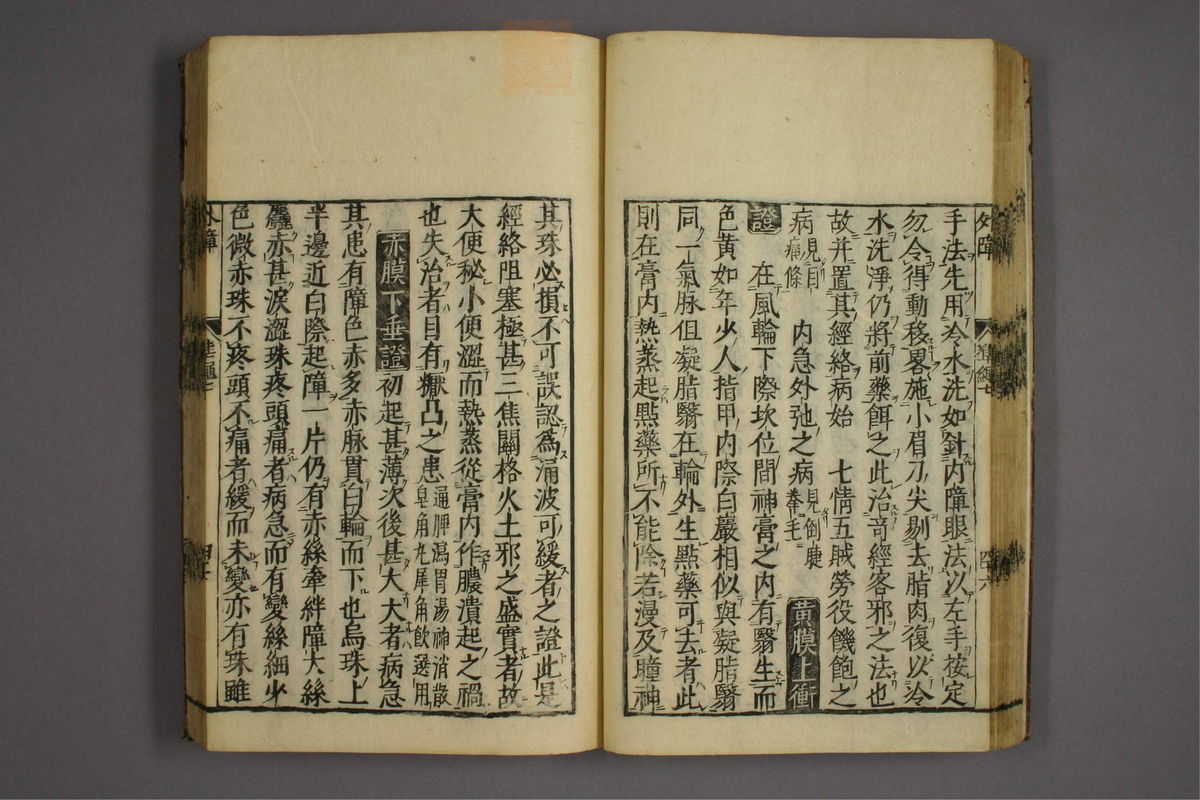 手法先用冷水洗如針內障眼法以左手按定
勿令得動移畧施小眉刀尖剔去脂肉復以冷
水洗淨仍將前藥餌之此治竒經客邪之法也
故并置其經絡病始　七情五賊勞役饑飽之
病見目痛條　內急外弛之病見倒睫拳毛　黃膜上衝
證　在風輪下際坎位間神膏之內有翳生而
色黃如年少人指甲內際白巖相似與凝脂翳
同一氣脉但凝脂翳在輪外生點藥可去者此
則在膏內熱蒸起點藥所不能除若漫及瞳神
其珠必損不可誤認爲涌波可緩者之證此是
經絡阻塞極甚三焦關格火土邪之盛實者故
大便秘小便澀而熱蒸從膏內作膿潰起之禍
也失治者目有凸之患通脾瀉胃湯神消散皂角丸犀角飲選用
赤膜下垂證初起甚薄次後甚大大者病急
其患有障色赤多赤脉貫白輪而下也烏珠上
半邊近白際起障一片仍有赤絲牽絆障大絲
麤赤甚淚澀珠疼頭痛者病急而有變絲細少
色微赤珠不疼頭不痛者緩而未變亦有珠雖
外障
四十六
外障
四十七